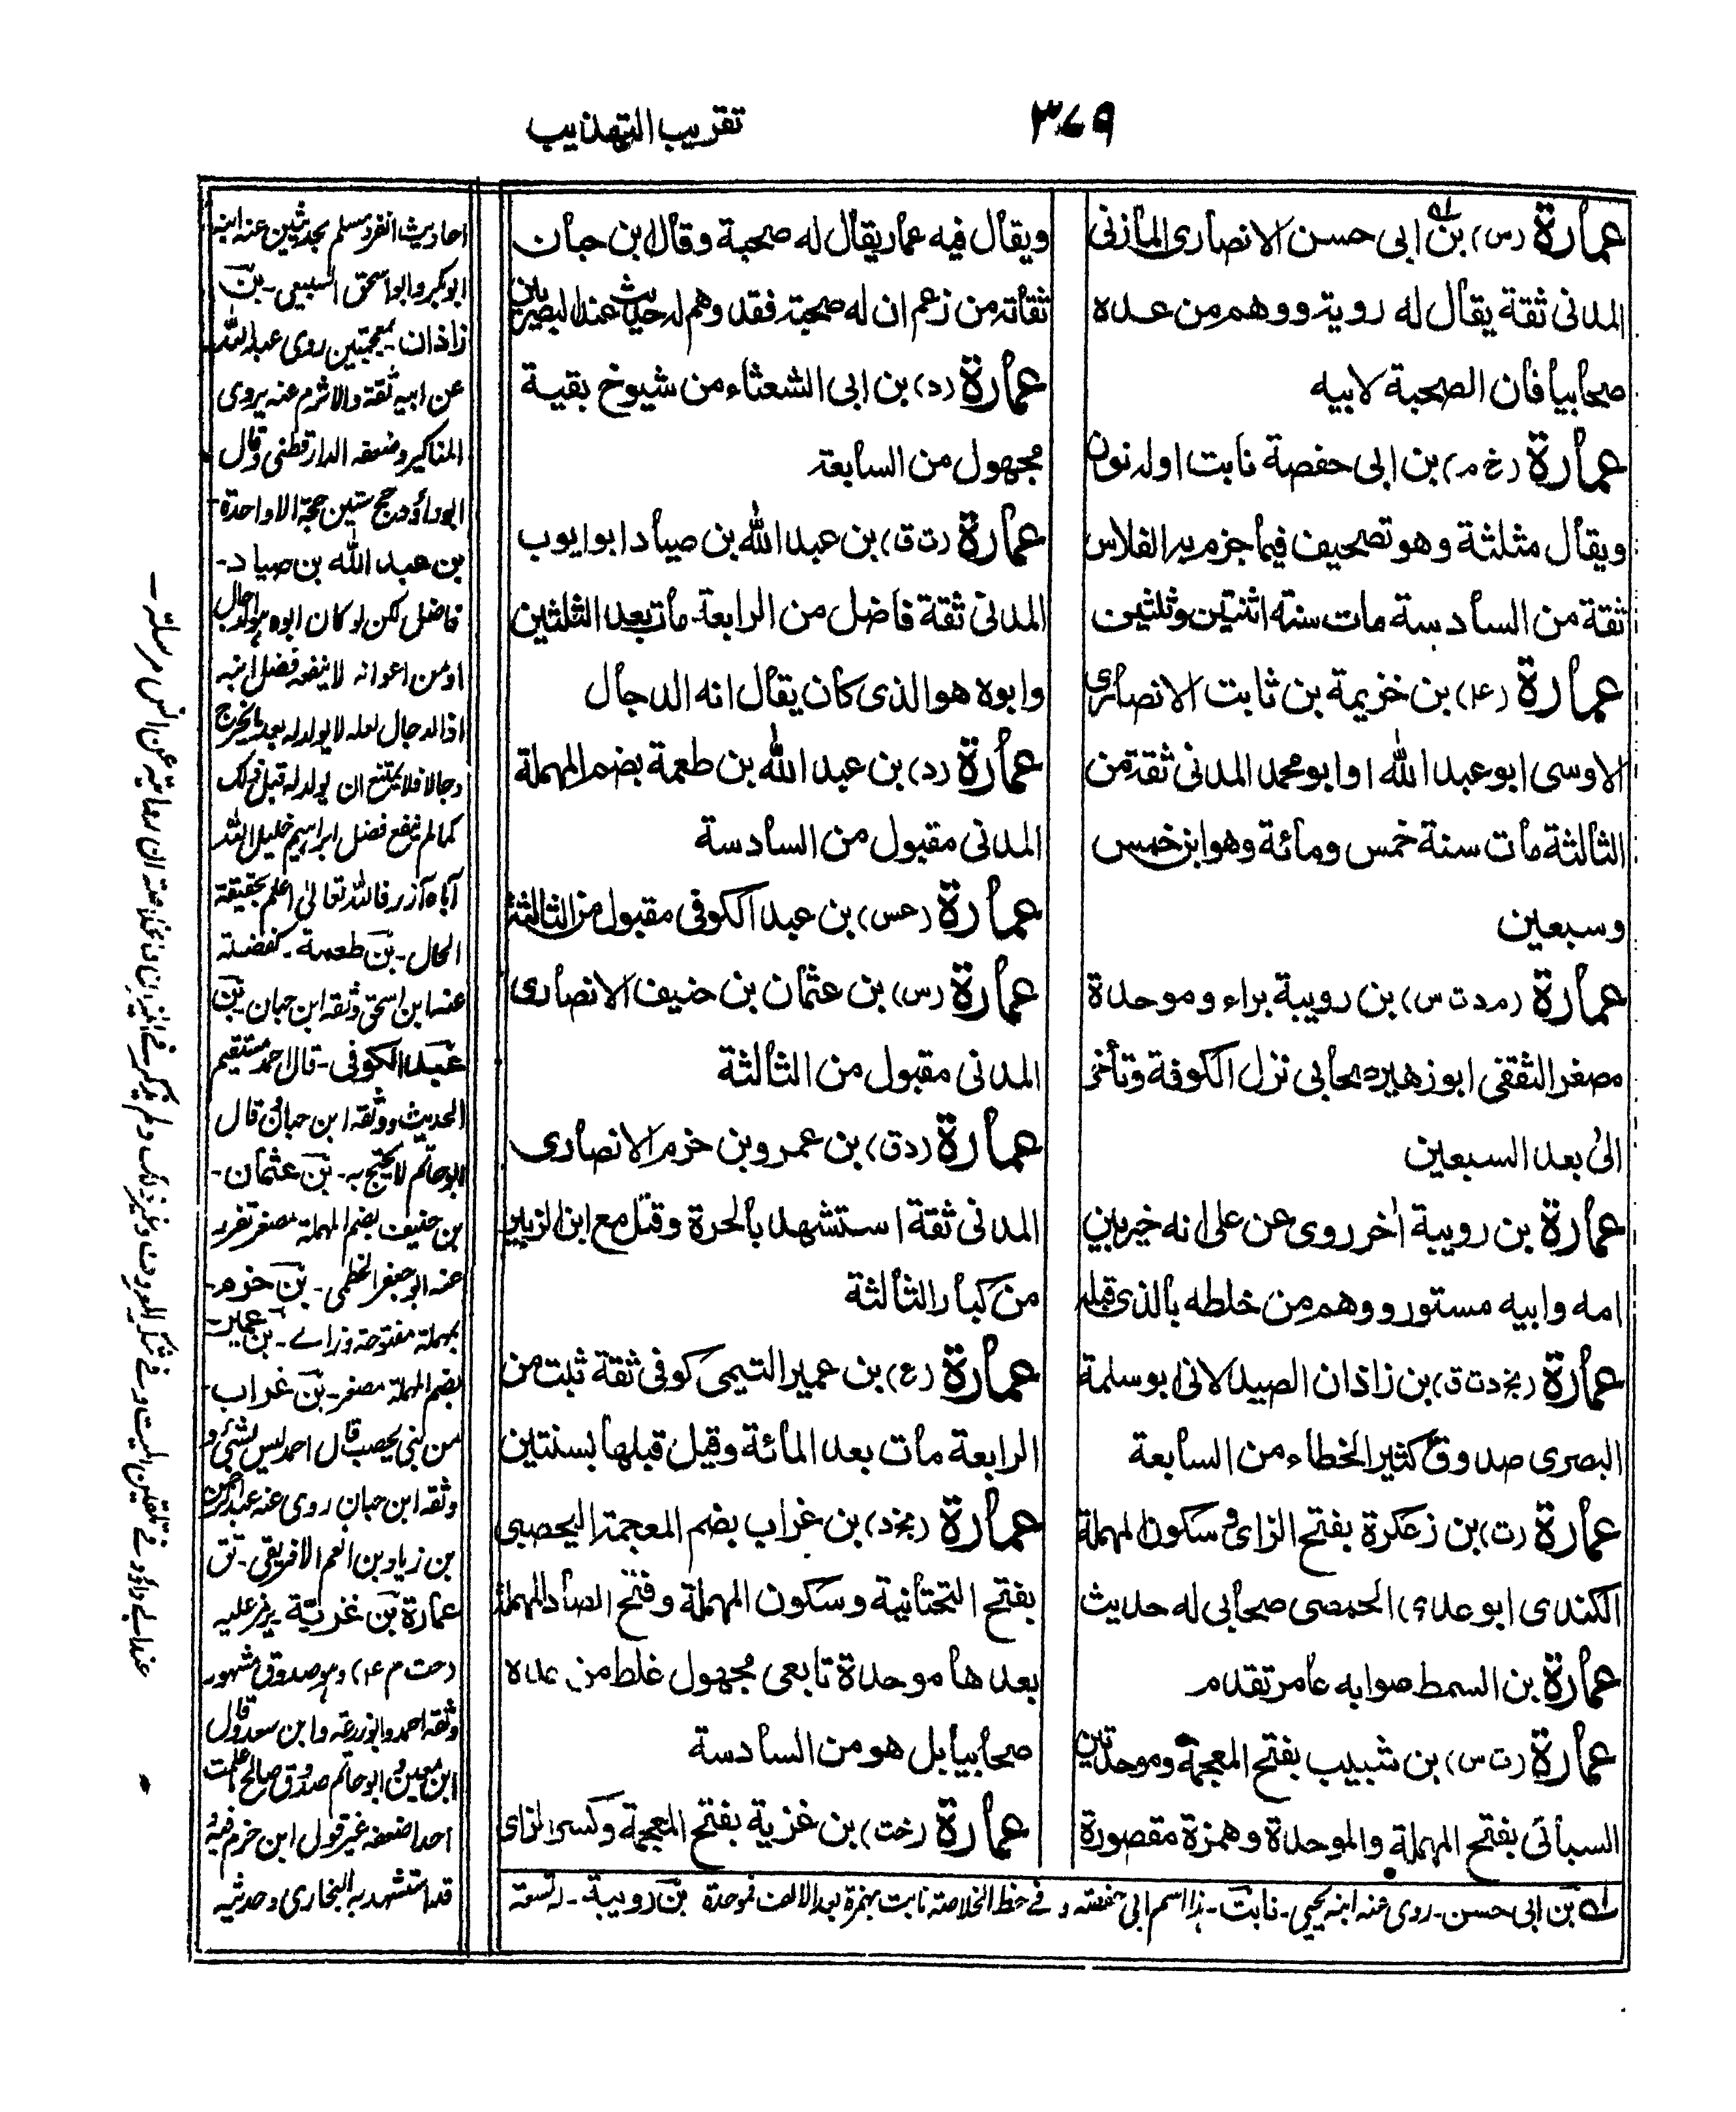 ٣٧٩
تقريب التهذيب
عمارة (س) بن ابى حسن الانصارى المازنى
المدنى ثقة يقال له روية ووهم من عده
صحابيا فان الصحبة لابيه
عمارة (خ م) بن ابى حفصة نابت اوله نون
ويقال مثلثة وهو تصحيف فيما جزم به الفلاس
ثقة من السادسة مات سنة اثنتين وثلثين
عمارة (٤) بن خزيمة بن ثابت الانصارى
الاوسى ابو عبد الله او ابو محمد المدنى ثقة من
الثالثة مات سنة خمس ومائة وهو ابن خمس
وسبعين
عمارة (م د ت س) بن رويبة براء وموحدة
مصغر الثقفى ابو زهير صحابى نزل الكوفة وتأخر
الى بعد السبعين
عمارة بن رويبة اخر روى عن على انه خير بين
امه وابيه مستور ووهم من خلطه بالذى قبله
عمارة (بخ د ت ق) بن زاذان الصيدلانى ابو سلمة
البصرى صدوق كثير الخطاء من السابعة
عمارة (ت) بن زعكرة بفتح الزاى وسكون المهملة
الكندى ابو عدى الحمصى صحابى له حديث
عمارة بن السمط صوابه عامر تقدم
عمارة (ت س) بن شبيب بفتح المعجمة وموحدتين
السبائى بفتح المهملة والموحدة وهمزة مقصورة
ويقال فيه عمار يقال له صحبة وقال ابن حبان
ثقاته من زعم ان له صحبة فقد وهم له حديث عند البصريين
عمارة (د) بن ابى الشعثاء من شيوخ بقية
مجهول من السابعة
عمارة (ت ق) بن عبد الله بن صياد ابو ايوب
المدنى ثقة فاضل من الرابعة مات بعد الثلثين
وابوه هو الذى كان يقال انه الدجال
عمارة (د) بن عبد الله بن طعمة بضم المهملة
المدنى مقبول من السادسة
عمارة (عس) بن عبد الكوفى مقبول من الثالثة
عمارة (س) بن عثمان بن حنيف الانصارى
المدنى مقبول من الثالثة
عمارة (د ق) بن عمرو بن حزم الانصارى
المدنى ثقة استشهد بالحرة وقتل مع ابن الزبير
من كبار الثالثة
عمارة (ع) بن عمير التيمى كوفى ثقة ثبت من
الرابعة مات بعد المائة وقيل قبلها بسنتين
عمارة (بخ د) بن غراب بضم المعجمة اليحصبى
بفتح التحتانية وسكون المهملة وفتح الصاد المهملة
بعدها موحدة تابعى مجهول غلط من عده
صحابيا بل هو من السادسة
عمارة (خت) بن غزية بفتح المعجمة وكسر الزاى
له بن ابى حسن۔ روى عنه ابنه يحيى۔ نابت۔ هذا اسم ابى حفصة و فى خط الخلاصة ثابت بهمزة بعد الالف فموحدة بن رويبة۔ له تسعة
احاديث انفرد مسلم بحديثين عنه ابنه
ابو بكر وابو اسحق السبيعى۔ بن
زاذان۔ بمعجمتين روى عبد الله
عن ابيه ثقة والاثرم عنه يروى
المناكير وضعفه الدارقطنى وقال
ابو داؤد حج ستين حجة الا واحدة۔
بن عبد الله بن صياد۔
فاضل لكن لو كان ابوه هو الدجال
او من اعوانه لا ينفعه فضل ابنه
اذ الدجال لعله لا يولد له بعد ما يخرج
دجالا فلا يمتنع ان يولد له قبل ذلك
كما لم ينفع فضل ابراهيم خليل الله
آباه آزر فالله تعالى اعلم بحقيقة
الحال۔ بن طعمة۔ كفضلة
عنه ابن اسحق وثقه ابن حبان بن
عبد الكوفى۔ قال احمد مستقيم
الحديث ووثقه ابن حبان وقال
ابو حاتم لا يحتج به۔ بن عثمان۔
بن حنيف بضم المهملة مصغر تفرد
عنه ابو جعفر الخطمى۔ بن حزم۔
بمهملة مفتوحة وزاے۔ بن عمير۔
بضم المهملة مصغر۔ بن غراب۔
من بنى يحصب قال احمد ليس بشئ و
وثقه ابن حبان روى عنه عبد الرحمن
بن زياد بن انعم الافريقى۔
عمارة بن غزية يرمز عليه
(خت م ٤) وهو صدوق مشهور
وثقه احمد وابو زرعة وابن سعد وقال
ابن معين وابو حاتم صدوق صالح ما علمت
احدا ضعفه غير قول ابن حزم فيه
قد استشهد به البخارى وحديثه